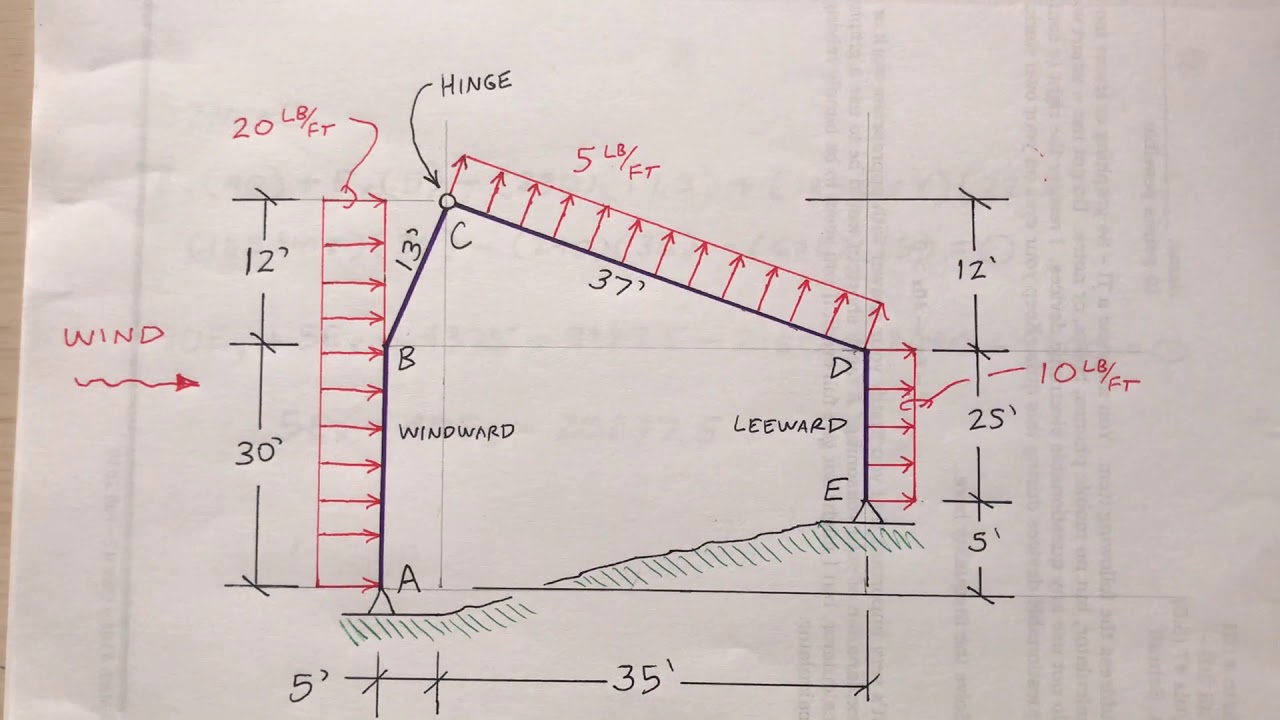 HINGE
20 LB/FT
5 LB/FT
12'
13'
C
37'
12'
WIND
B
D
10 LB/FT
30'
WINDWARD
LEEWARD
25'
E
5'
A
5'
35'